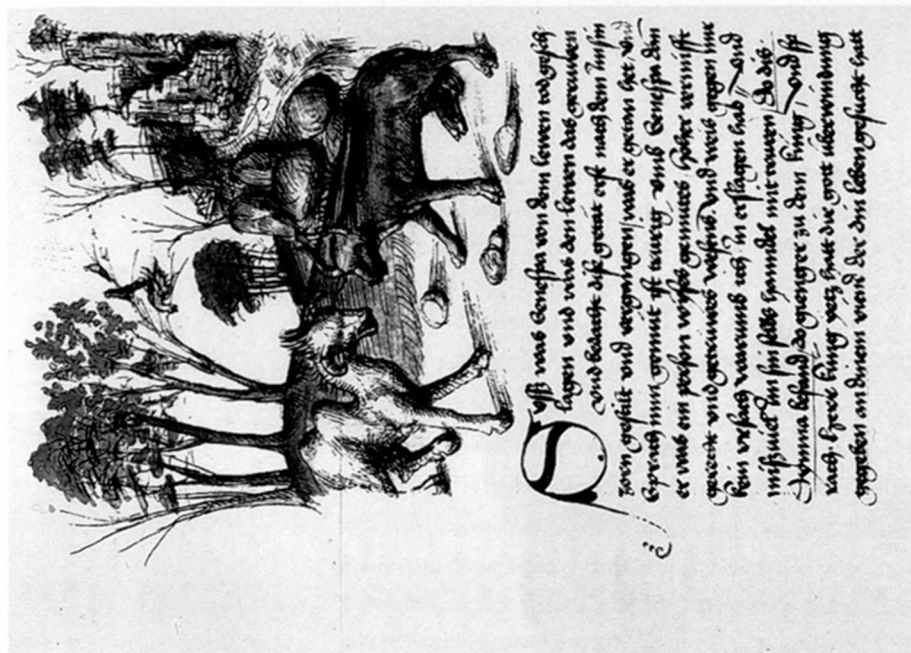 Suss was Senespa von dem lewen todgesch
lagen vnd was dem lewen das
vnd bedacht dis getät erst nach dem im sin
zorn gestilt vnd vergangen / was er getan het vnd
sprach min gemüt ist trurig vmb Senespa dann
er was ein person wyses gemütes hoher vernufft
gerecht vnd getruwes wesens vnd weis gegen im
kein vrsach warumb ich in erschlagen hab vnd
im sins selbs hanndel mit ruwen Do dis
Dymna befand do gieng er zu dem küng vnd sp
rach herre küng yetz hatt dir gott überwindung
gegeben an dinem viend der din leben gesucht hatt